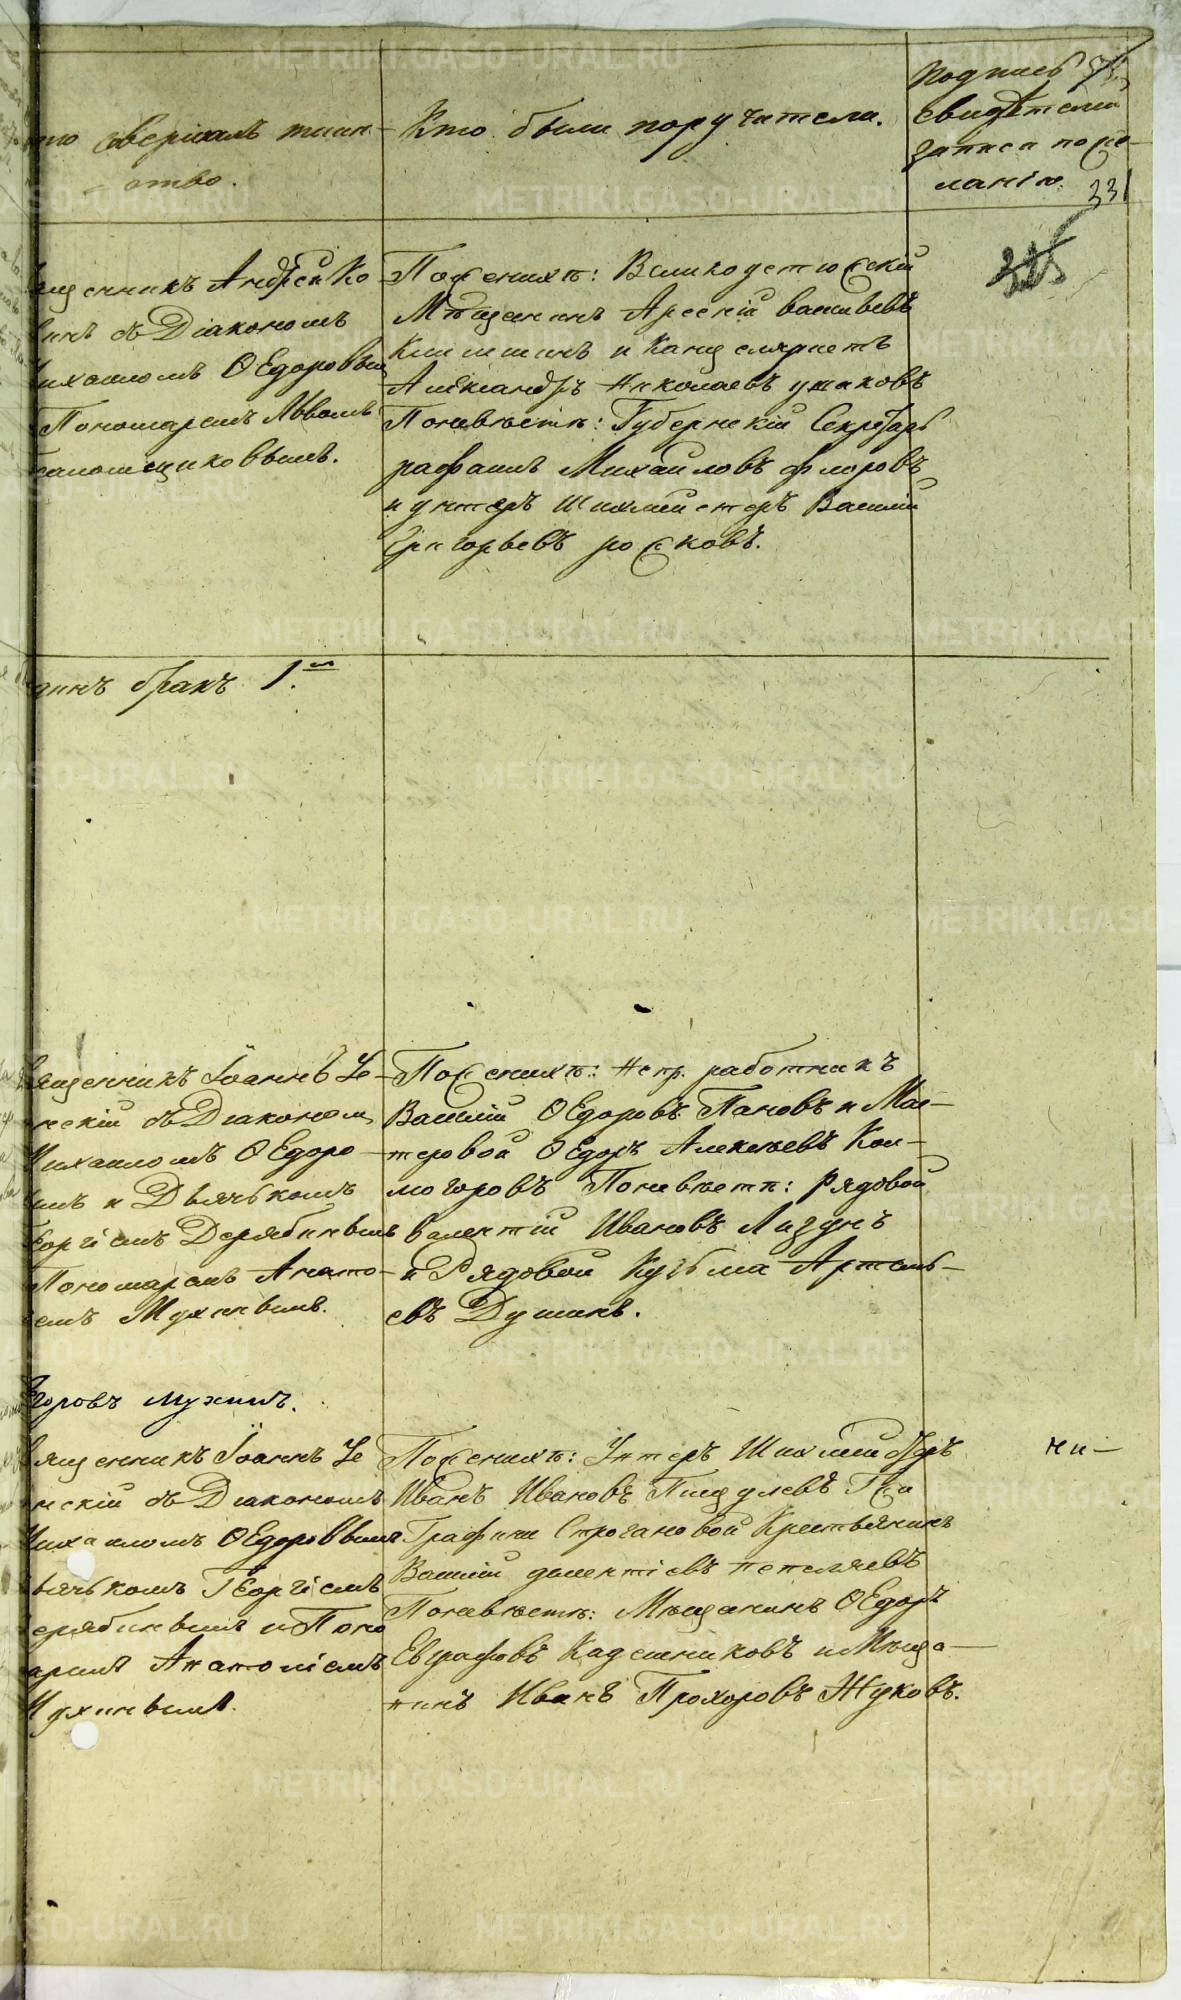 Кто совершалъ таин-
ство.
Кто были поручители.
Подпись
свидѣтелей
записи по же-
ланію.
331
Священникъ Андрей Ко
съ Діакономъ
Михаиломъ Ѳедоровым
Пономаремъ Аввам
По женихѣ: Великоустюжскій
Мѣщанинъ Арсеній Васильевъ
и Канцеляристъ
Александръ Николаевъ Ушаковъ
По невѣстѣ: Губернскій Секретарь
Рафаилъ Михайловъ Флоровъ
и унтеръ Шихмейстеръ Василій
Григорьевъ Рожковъ.
Одинъ бракъ 1.
Священникъ Іоаннъ Зе
нскій съ Діакономъ
Михаиломъ Ѳедоро
вымъ и Дьячькомъ
Георгіемъ Дерябинымъ
Пономаремъ Анато-
емъ Мухинымъ.
По женихѣ: Непр. работникъ
Василій Ѳедоровъ Пановъ и Мас-
теровой Ѳедоръ Алексѣевъ Кол-
могоровъ По невѣстѣ: Рядовой
Иванъ Лизунъ
и Рядовой Кузьма Артемь-
евъ Душинъ.
Егоровъ Мухинъ.
Священникъ Іоаннъ Зе
нскій съ Діакономъ
Михаиломъ Ѳедоровымъ
Дьячькомъ Георгіемъ
Дерябинымъ и Поно
маремъ Анатоліемъ
Мухинымъ.
По женихѣ: Унтеръ Шихмейстеръ
Иванъ Ивановъ Г-жи
Графини Строгановой Крестьянинъ
Василій Пепеляевъ
По невѣстѣ: Мѣщанинъ Ѳедоръ
Евграфовъ Кадешниковъ и Мѣща-
нинъ Иванъ Прохоровъ Жуковъ.